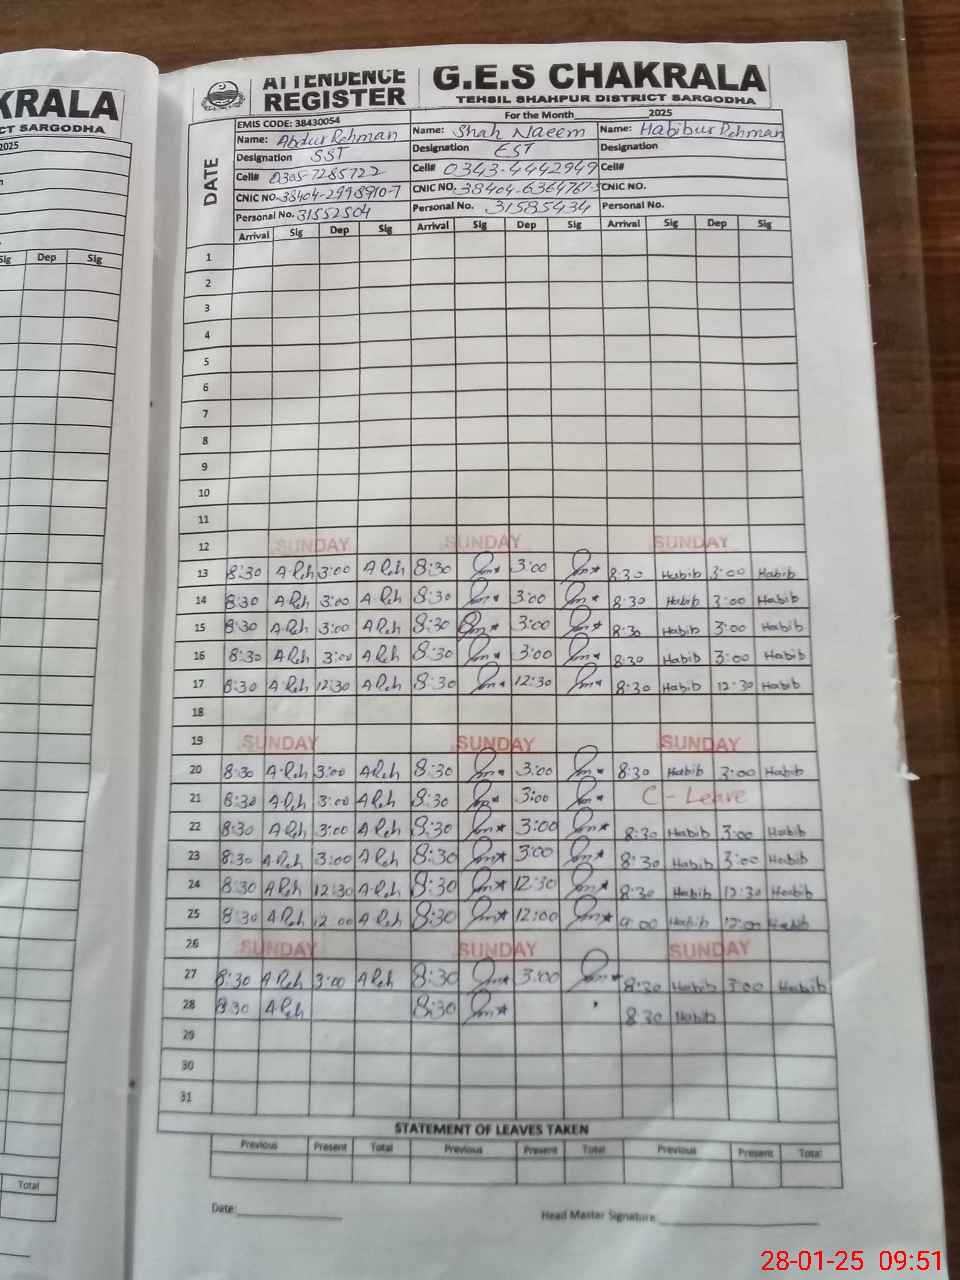 KRALA
CT SARGODHA
2025
Sig Dep Sig
Total
ATTENDENCE REGISTER
G.E.S CHAKRALA
TEHSIL SHAHPUR DISTRICT SARGODHA
DATE
EMIS CODE: 38430054
For the Month 2025
Name: Abdur Rehman Name: Shah Naeem Name: Habibur Rehman
Designation SST Designation EST Designation
Cell# 0305-7285722 Cell# 0343-4442949 Cell#
CNIC NO. 38404-2998910-7 CNIC NO. 38404-6364767-5 CNIC NO.
Personal No. 31552504 Personal No. 31585434 Personal No.
Arrival Sig Dep Sig Arrival Sig Dep Sig Arrival Sig Dep Sig
1
2
3
4
5
6
7
8
9
10
11
12 SUNDAY SUNDAY SUNDAY
13 8:30 A.Reh 3:00 A.Reh 8:30 3:00 8:30 Habib 3:00 Habib
14 8:30 A.Reh 3:00 A.Reh 8:30 3:00 8:30 Habib 3:00 Habib
15 8:30 A.Reh 3:00 A.Reh 8:30 3:00 8:30 Habib 3:00 Habib
16 8:30 A.Reh 3:00 A.Reh 8:30 3:00 8:30 Habib 3:00 Habib
17 8:30 A.Reh 12:30 A.Reh 8:30 12:30 8:30 Habib 12:30 Habib
18
19 SUNDAY SUNDAY SUNDAY
20 8:30 A.Reh 3:00 A.Reh 8:30 3:00 8:30 Habib 3:00 Habib
21 8:30 A.Reh 3:00 A.Reh 8:30 3:00 C-Leave
22 8:30 A.Reh 3:00 A.Reh 8:30 3:00 8:30 Habib 3:00 Habib
23 8:30 A.Reh 3:00 A.Reh 8:30 3:00 8:30 Habib 3:00 Habib
24 8:30 A.Reh 12:30 A.Reh 8:30 12:30 8:30 Habib 12:30 Habib
25 8:30 A.Reh 12:00 A.Reh 8:30 12:00 9:00 Habib 12:00 Habib
26 SUNDAY SUNDAY SUNDAY
27 8:30 A.Reh 3:00 A.Reh 8:30 3:00 8:30 Habib 3:00 Habib
28 8:30 A.Reh 8:30 8:30 Habib
29
30
31
STATEMENT OF LEAVES TAKEN
Previous Present Total Previous Present Total Previous Present Total
Date: Head Master Signature:
28-01-25 09:51